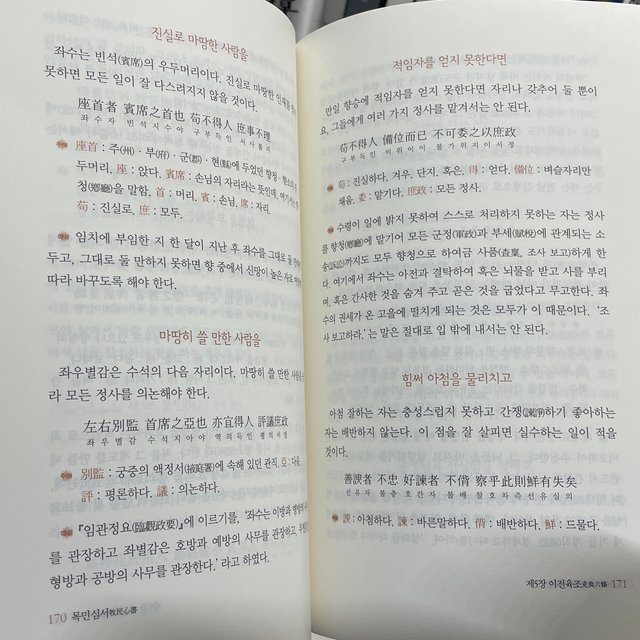 진실로 마땅한 사람을
좌수는 빈석(賓席)의 우두머리이다. 진실로 마땅한 인재를
못하면 모든 일이 잘 다스려지지 않을 것이다.
座首者 賓席之首也 苟不得人 庶事不理
좌수자 빈석지수야 구부득인 서사불리
座首 : 주(州)·부(府)·군(郡)·현(縣)에 두었던 향청·향소의 우
두머리. 座 : 앉다. 賓席 : 손님의 자리라는 뜻인데, 여기서는
청(鄕廳)을 말함. 首 : 머리. 賓 : 손님. 席 : 자리.
苟 : 진실로. 庶 : 모두.
임지에 부임한 지 한 달이 지난 후 좌수를 그대로 둘
두고, 그대로 둘 만하지 못하면 향 중에서 신망이 높은 자로
따라 바꾸도록 해야 한다.
마땅히 쓸 만한 사람을
좌우별감은 수석의 다음 자리이다. 마땅히 쓸 만한 사람을
라 모든 정사를 의논해야 한다.
左右別監 首席之亞也 亦宜得人 評議庶政
좌우별감 수석지아야 역의득인 평의서정
別監 : 궁중의 액정서(掖庭署)에 속해 있던 관직. 亞 : 다음.
評 : 평론하다. 議 : 의논하다.
『임관정요(臨觀政要)』에 이르기를, '좌수는 이방과 병방의
를 관장하고 좌별감은 호방과 예방의 사무를 관장하고,
형방과 공방의 사무를 관장한다.'라고 하였다.
170 목민심서牧民心書
적임자를 얻지 못한다면
만일 향승에 적임자를 얻지 못한다면 자리나 갖추어 둘 뿐이
요, 그들에게 여러 가지 정사를 맡겨서는 안 된다.
苟不得人 備位而已 不可委之以庶政
구부득인 비위이이 불가위지이서정
苟 : 진실하다. 겨우, 단지, 혹은. 得 : 얻다. 備位 : 벼슬자리만
채움. 委 : 맡기다. 庶政 : 모든 정사.
수령이 일에 밝지 못하여 스스로 처리하지 못하는 자는 정사
를 향청(鄕廳)에 맡기어 모든 군정(軍政)과 부세(賦稅)에 관계되는 소
송(訴訟)까지도 모두 향청으로 하여금 사품(査稟, 조사 보고)하게 한
다. 여기에서 좌수는 아전과 결탁하여 혹은 뇌물을 받고 사를 부리
며, 혹은 간사한 것을 숨겨 주고 곧은 것을 굽었다고 무고한다. 좌
수의 권세가 온 고을에 떨치게 되는 것은 모두가 이 때문이다. '조
사 보고하라.'는 말은 절대로 입 밖에 내서는 안 된다.
힘써 아첨을 물리치고
아첨 잘하는 자는 충성스럽지 못하고 간쟁(諫諍)하기 좋아하는
자는 배반하지 않는다. 이 점을 잘 살피면 실수하는 일이 적을
것이다.
善諛者 不忠 好諫者 不偝 察乎此則鮮有失矣
선유자 불충 호간자 불배 찰호차즉선유실의
諛 : 아첨하다. 諫 : 바른말하다. 偝 : 배반하다. 鮮 : 드물다.
제5장 이전육조吏典六條 171